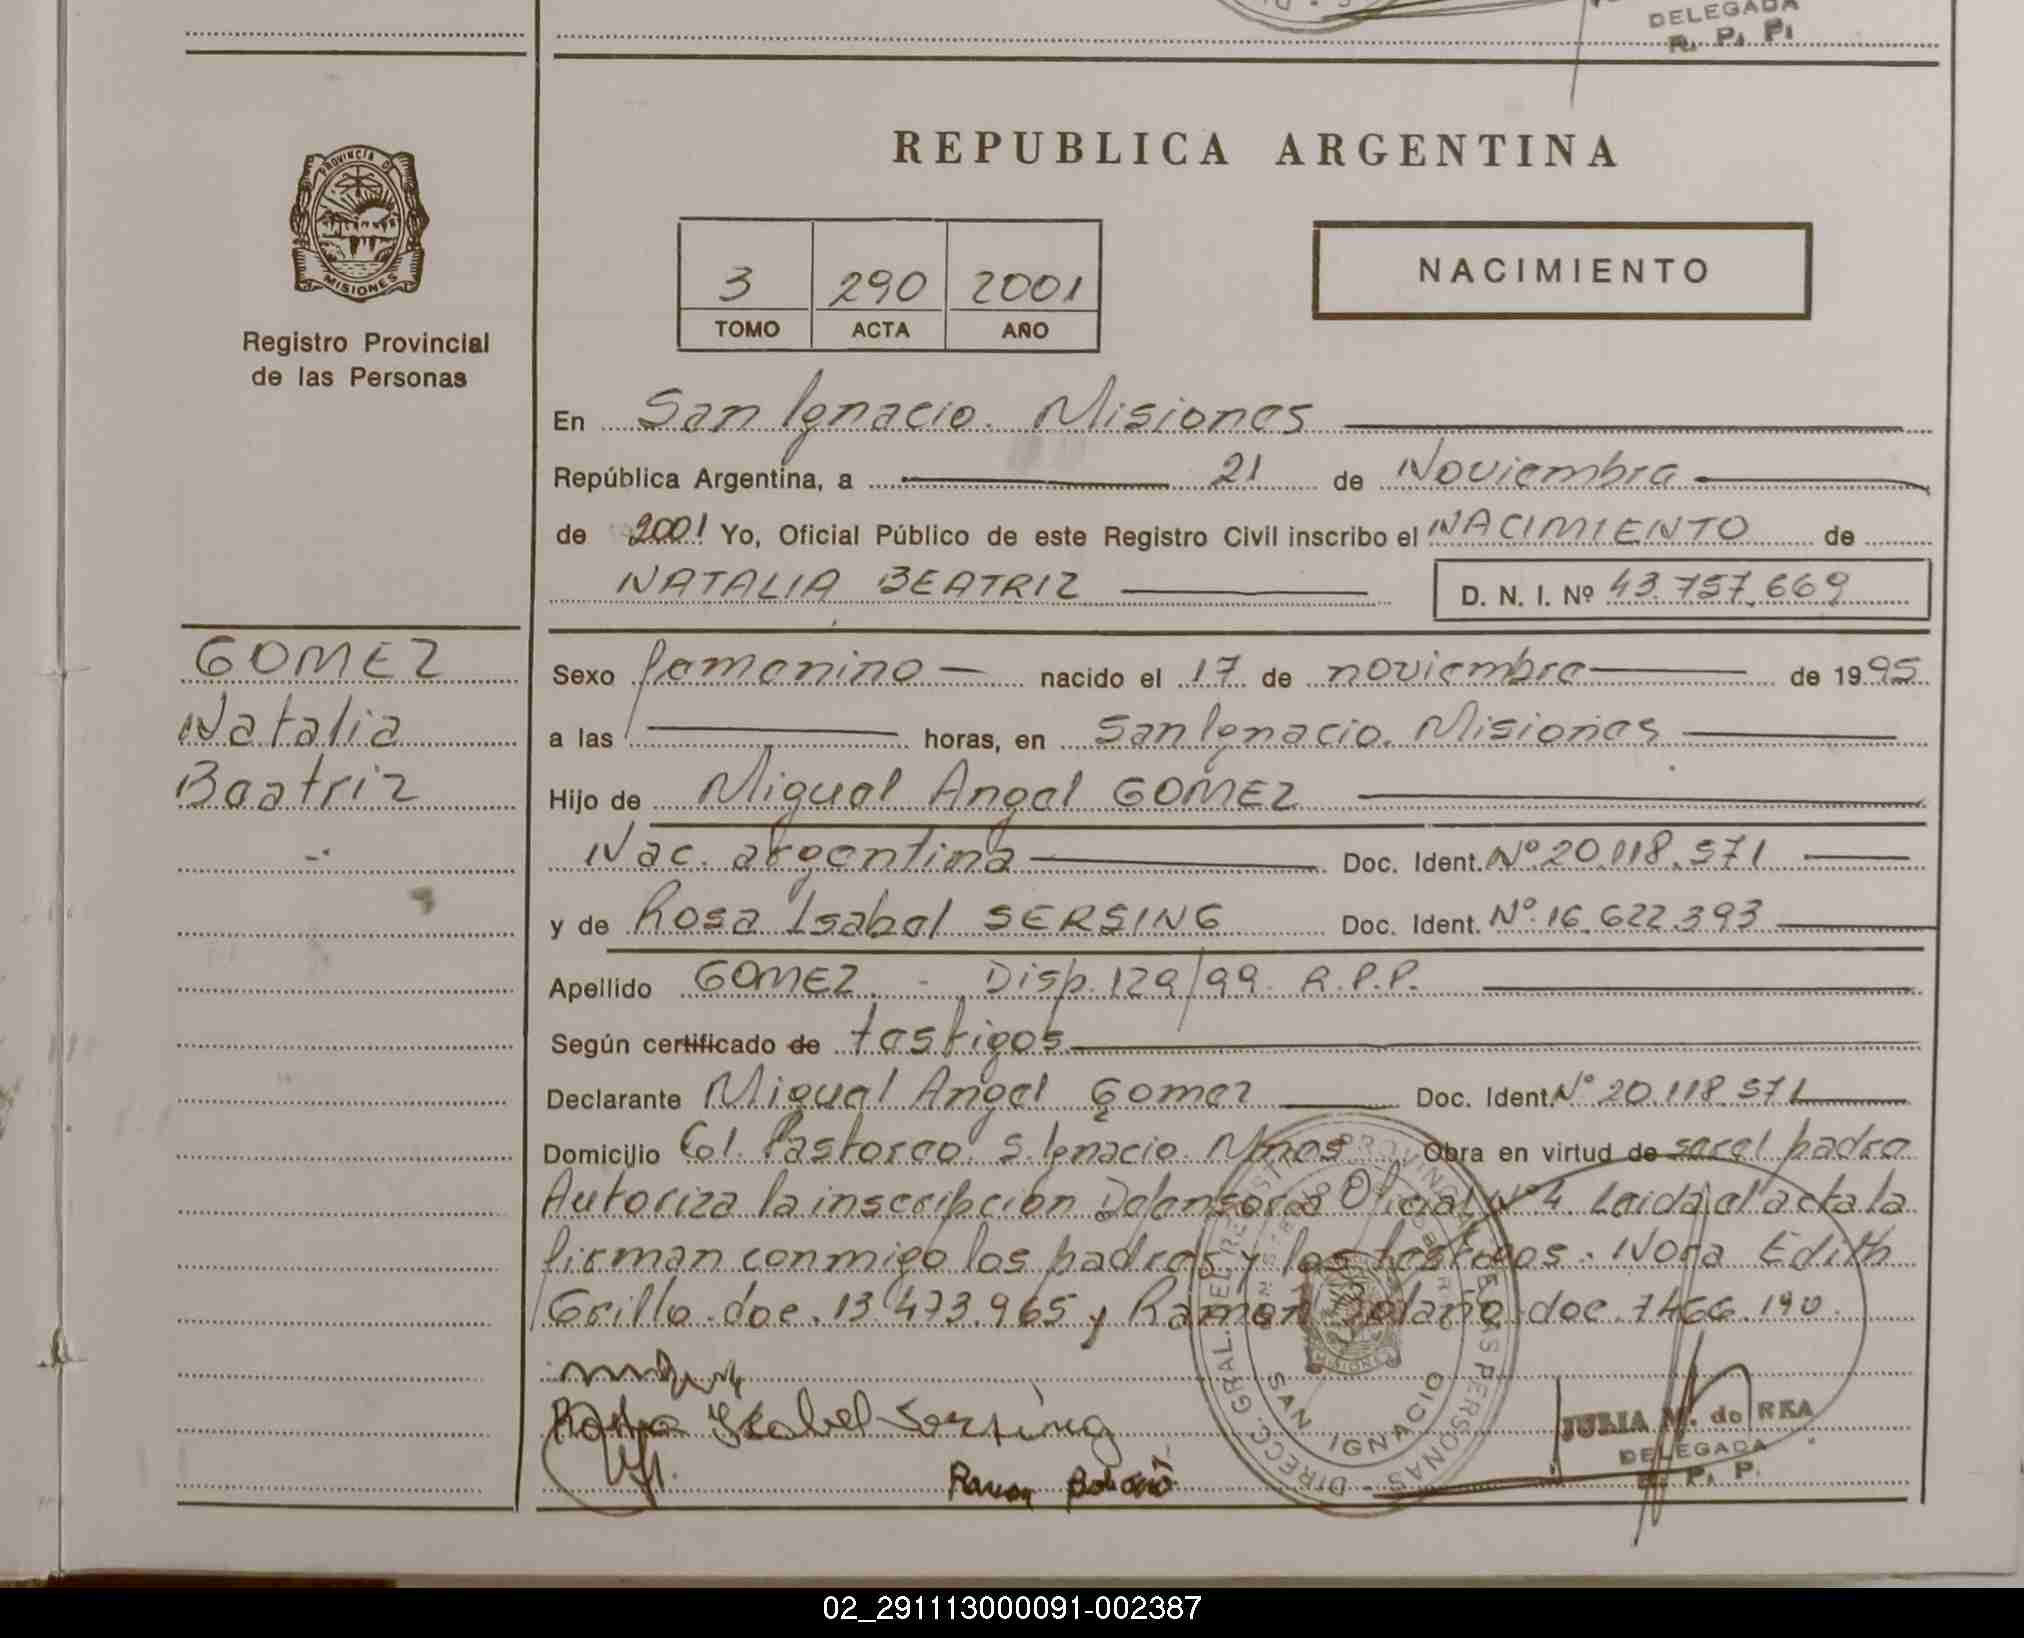 DELEGADA
R. P. P.
REPUBLICA ARGENTINA
PROVINCIA DE
MISIONES
Registro Provincial
de las Personas
3 290 2001
TOMO ACTA AÑO
NACIMIENTO
En San Ignacio. Misiones
República Argentina, a 21 de Noviembre
de 2001 Yo, Oficial Público de este Registro Civil inscribo el NACIMIENTO de
NATALIA BEATRIZ D. N. I. Nº 43.757.669
GOMEZ
Natalia
Beatriz
Sexo femenino nacido el 17 de noviembre de 1995
a las horas, en San Ignacio. Misiones
Hijo de Miguel Angel GOMEZ
Nac. argentina Doc. Ident. Nº 20.118.571
y de Rosa Isabel SERSING Doc. Ident. Nº 16.622.393
Apellido GOMEZ. - Disp. 129/99. R.P.P.
Según certificado de testigos
Declarante Miguel Angel Gomez Doc. Ident. Nº 20.118.571
Domicilio Col. Pastoreo. S. Ignacio. Mnes Obra en virtud de ser el padre
Autoriza la inscripcion Defensora Oficial Nº 4. Leida el acta la
firman conmigo los padres y los testigos. Nora Edith
Grillo. doc. 13.473.965 y Ramon doc. 7.466.190.
Isabel Sersing
Ramon
DIRECC. GRAL. DEL REGISTRO PROVINCIAL DE LAS PERSONAS
SAN IGNACIO
MISIONES
JULIA M. de REA
DELEGADA
R. P. P.
02_291113000091-002387